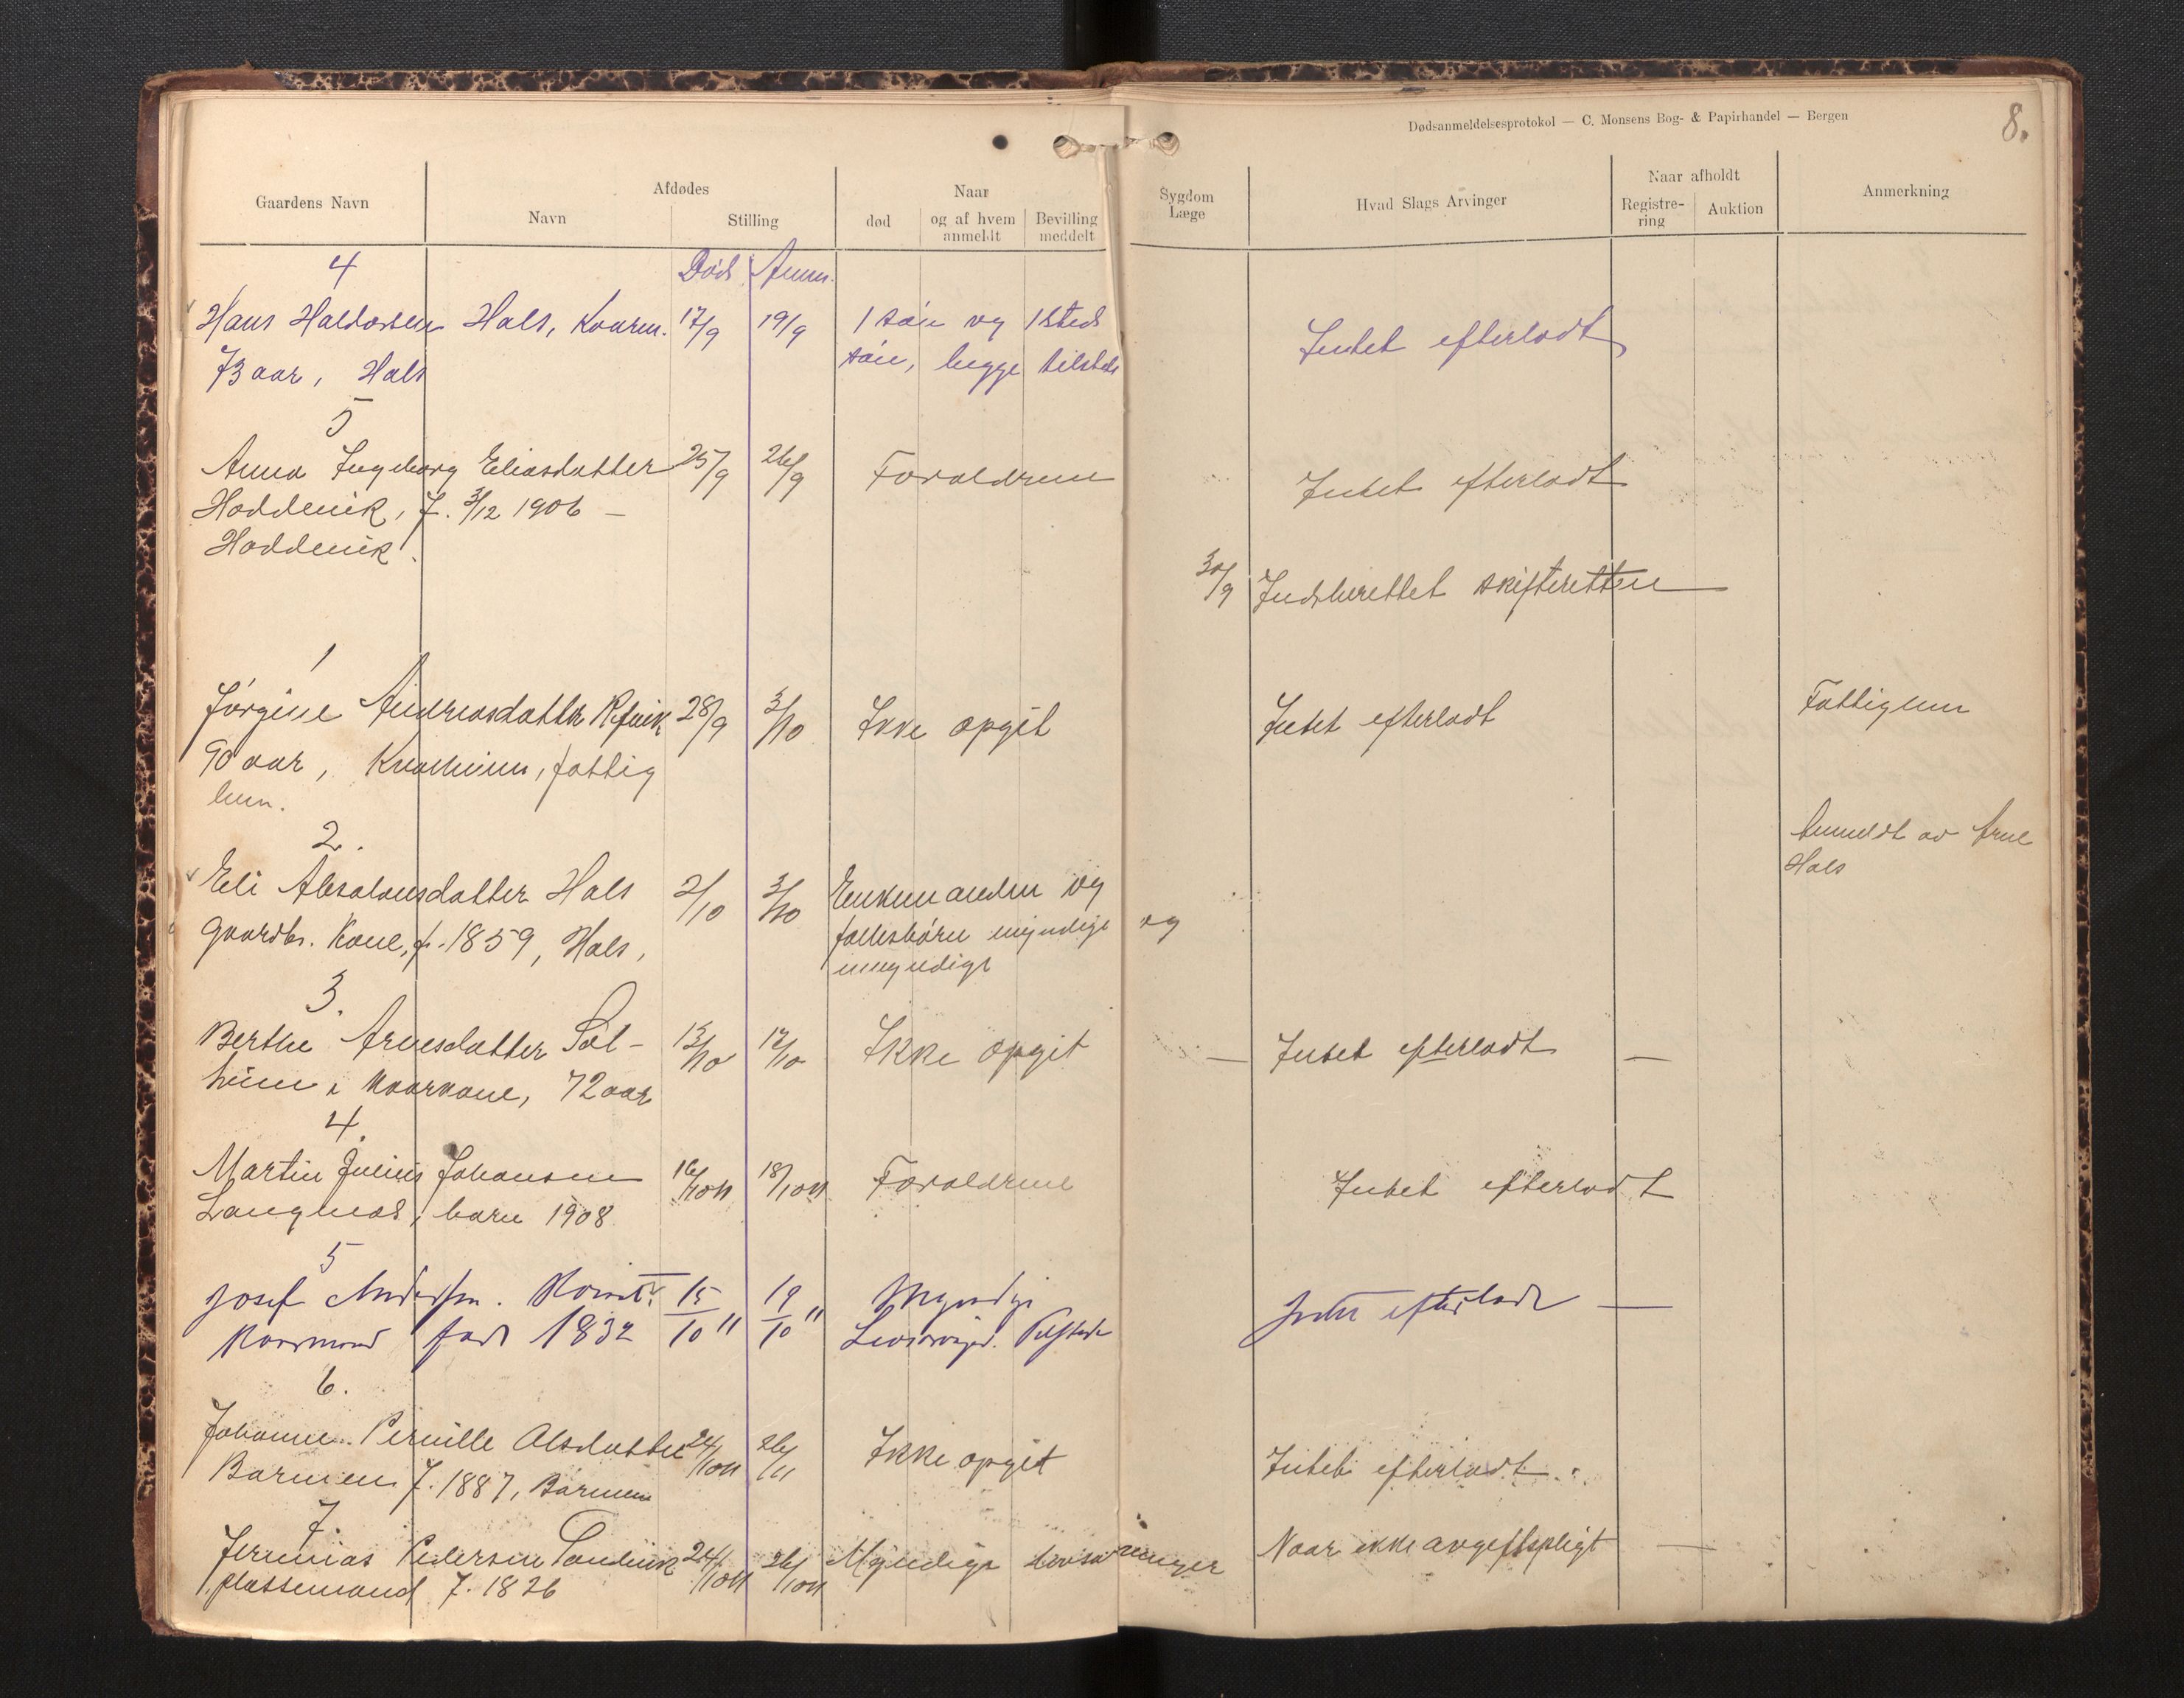 Dødsanmeldelsesprotokol — C. Monsens Bog- & Papirhandel — Bergen
8.
Gaardens Navn
Afdødes
Navn
Stilling
Naar
død
og af hvem anmeldt
Bevilling meddelt
Sygdom
Læge
Hvad Slags Arvinger
Naar afholdt
Registre-
ring
Auktion
Anmerkning
4
Død Anm.
Hans Haldorsen Hals, Kaarm. 17/9 19/9 1 søn og 1 sted Intet efterladt
73 aar, Hals søn, begge tilstede
5
Anna Ingeborg Eliasdatter 25/9 26/9 Forældrene Intet efterladt
Hoddevik, f. 3/12 1906 —
Hoddevik.
30/9 Indberettet skifteretten
1
Jørgine Andreasdatter Refvik 28/9 3/10 Ikke opgit Intet efterladt Fattiglem
90 aar, fattig
lem.
2.
Anmeldt av Arne
Hals
Eli Absalonsdatter Hals 2/10 3/10 Enkemanden og
gaardbr. Kone, f. 1859, Hals, fællesbørn myndige og
umyndige
3.
Berthe Arnesdatter Sol- 13/10 17/10 Ikke opgit — Intet efterladt —
heim, Kaarkone, 72 aar
4.
Martin Julius Johansen 16/10 08 18/10 08 Forældrene Intet efterladt
Langnes, barn 1908
5
Josef Andersen. 15/10 " 19/10 " Myndige Intet efterladt —
Kaarmand født 1832 Livsarving. Tilstede
6.
Johanne Pernille Olsdatter 24/10 08 26/11 Ikke opgit Intet efterladt.
Barmen f. 1887, Barmen
7.
Jeremias Pedersen Sandvik 24/10 08 26/10 08 Myndige livsarvinger Naar ikke avgiftspligt —
plassemand f. 1826